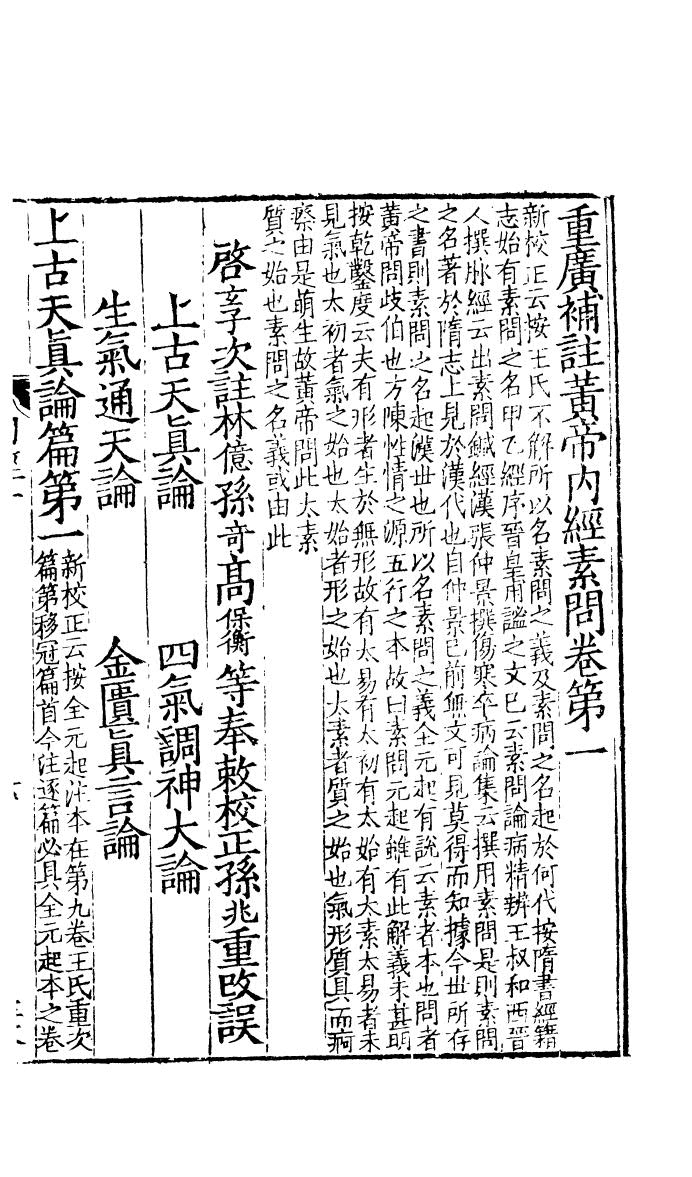 重廣補註黃帝內經素問卷第一
新校正云按王氏不解所以名素問之義及素問之名起於何代按隋書經籍
志始有素問之名甲乙經序晉皇甫謐之文已云素問論病精辨王叔和西晉
人撰脉經云出素問鍼經漢張仲景撰傷寒卒病論集云撰用素問是則素問
之名著於隋志上見於漢代也自仲景已前無文可見莫得而知據今世所存
之書則素問之名起漢世也所以名素問之義全元起有說云素者本也問者
黃帝問歧伯也方陳性情之源五行之本故曰素問元起雖有此解義未甚明
按乾鑿度云夫有形者生於無形故有太易有太初有太始有太素太易者未
見氣也太初者氣之始也太始者形之始也太素者質之始也氣形質具而痾
瘵由是萌生故黃帝問此太素
質之始也素問之名義或由此
啓玄子次註林億孫奇高保衡等奉敕校正孫兆重改誤
上古天真論 四氣調神大論
生氣通天論 金匱真言論
上古天真論篇第一
新校正云按全元起注本在第九卷王氏重次
篇第移冠篇首今注逐篇必具全元起本之卷